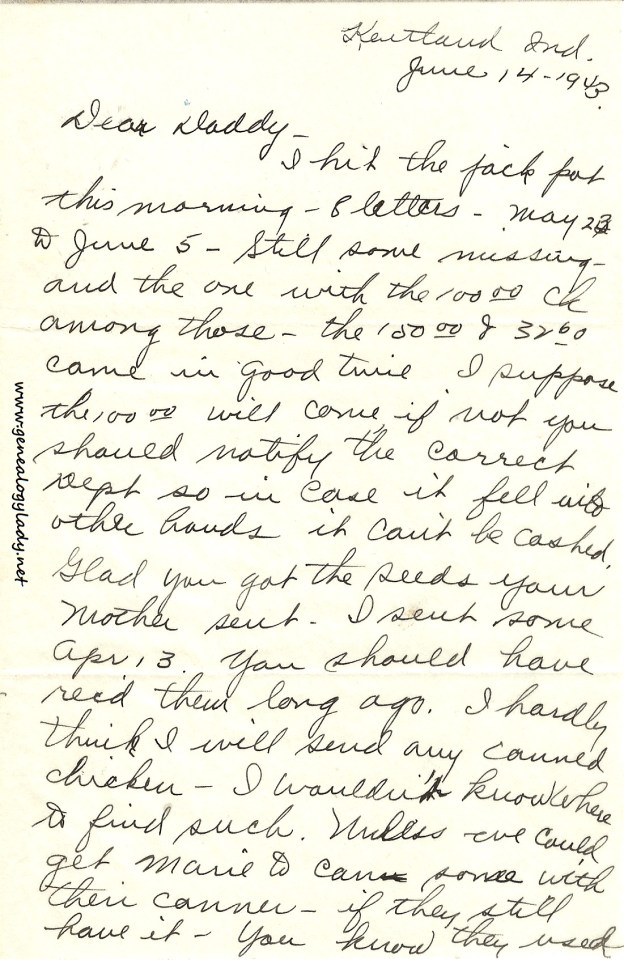 Kentland Ind.
June 14-1943.
Dear Daddy-
I hit the jack pot
this morning - 8 letters - May 23
to June 5 - Still some missing-
and the one with the 100 00 ck
among those - the 150 00 & 32 60
came in good time I suppose
the 100 00 will come, if not you
should notify the correct
dept so in case it fell into
other hands it can't be cashed.
Glad you got the seeds your
mother sent. I sent some
Apr, 13. You should have
rec'd them long ago. I hardly
think I will send any canned
chicken - I wouldn't know where
to find such. Unless we could
get Marie to can some with
their canner - if they still
have it - You know they used
www.genealogylady.net